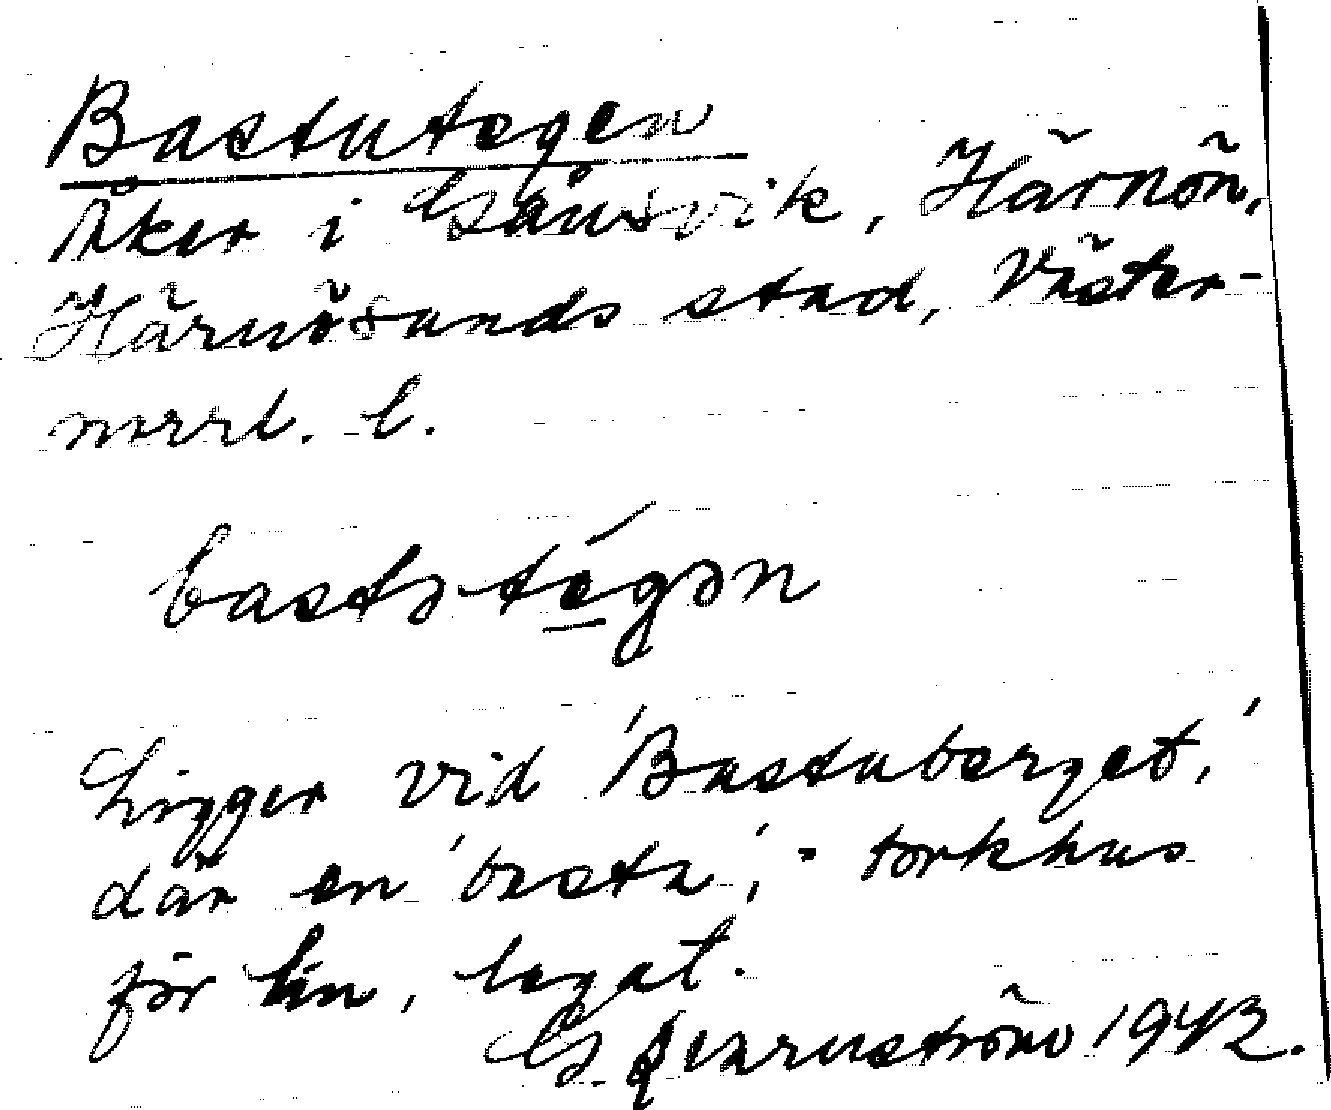 Bastutegen
Åker i Gånsvik, Härnön,
Härnösands stad, Väster-
norrl. l.
bastətégən
Ligger vid 'Bastuberget,'
där en 'bastu', = torkhus
för lin, legat.
G. Qvarnström 1943.